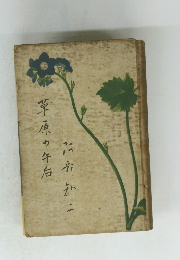 阿部知二
草原の午后